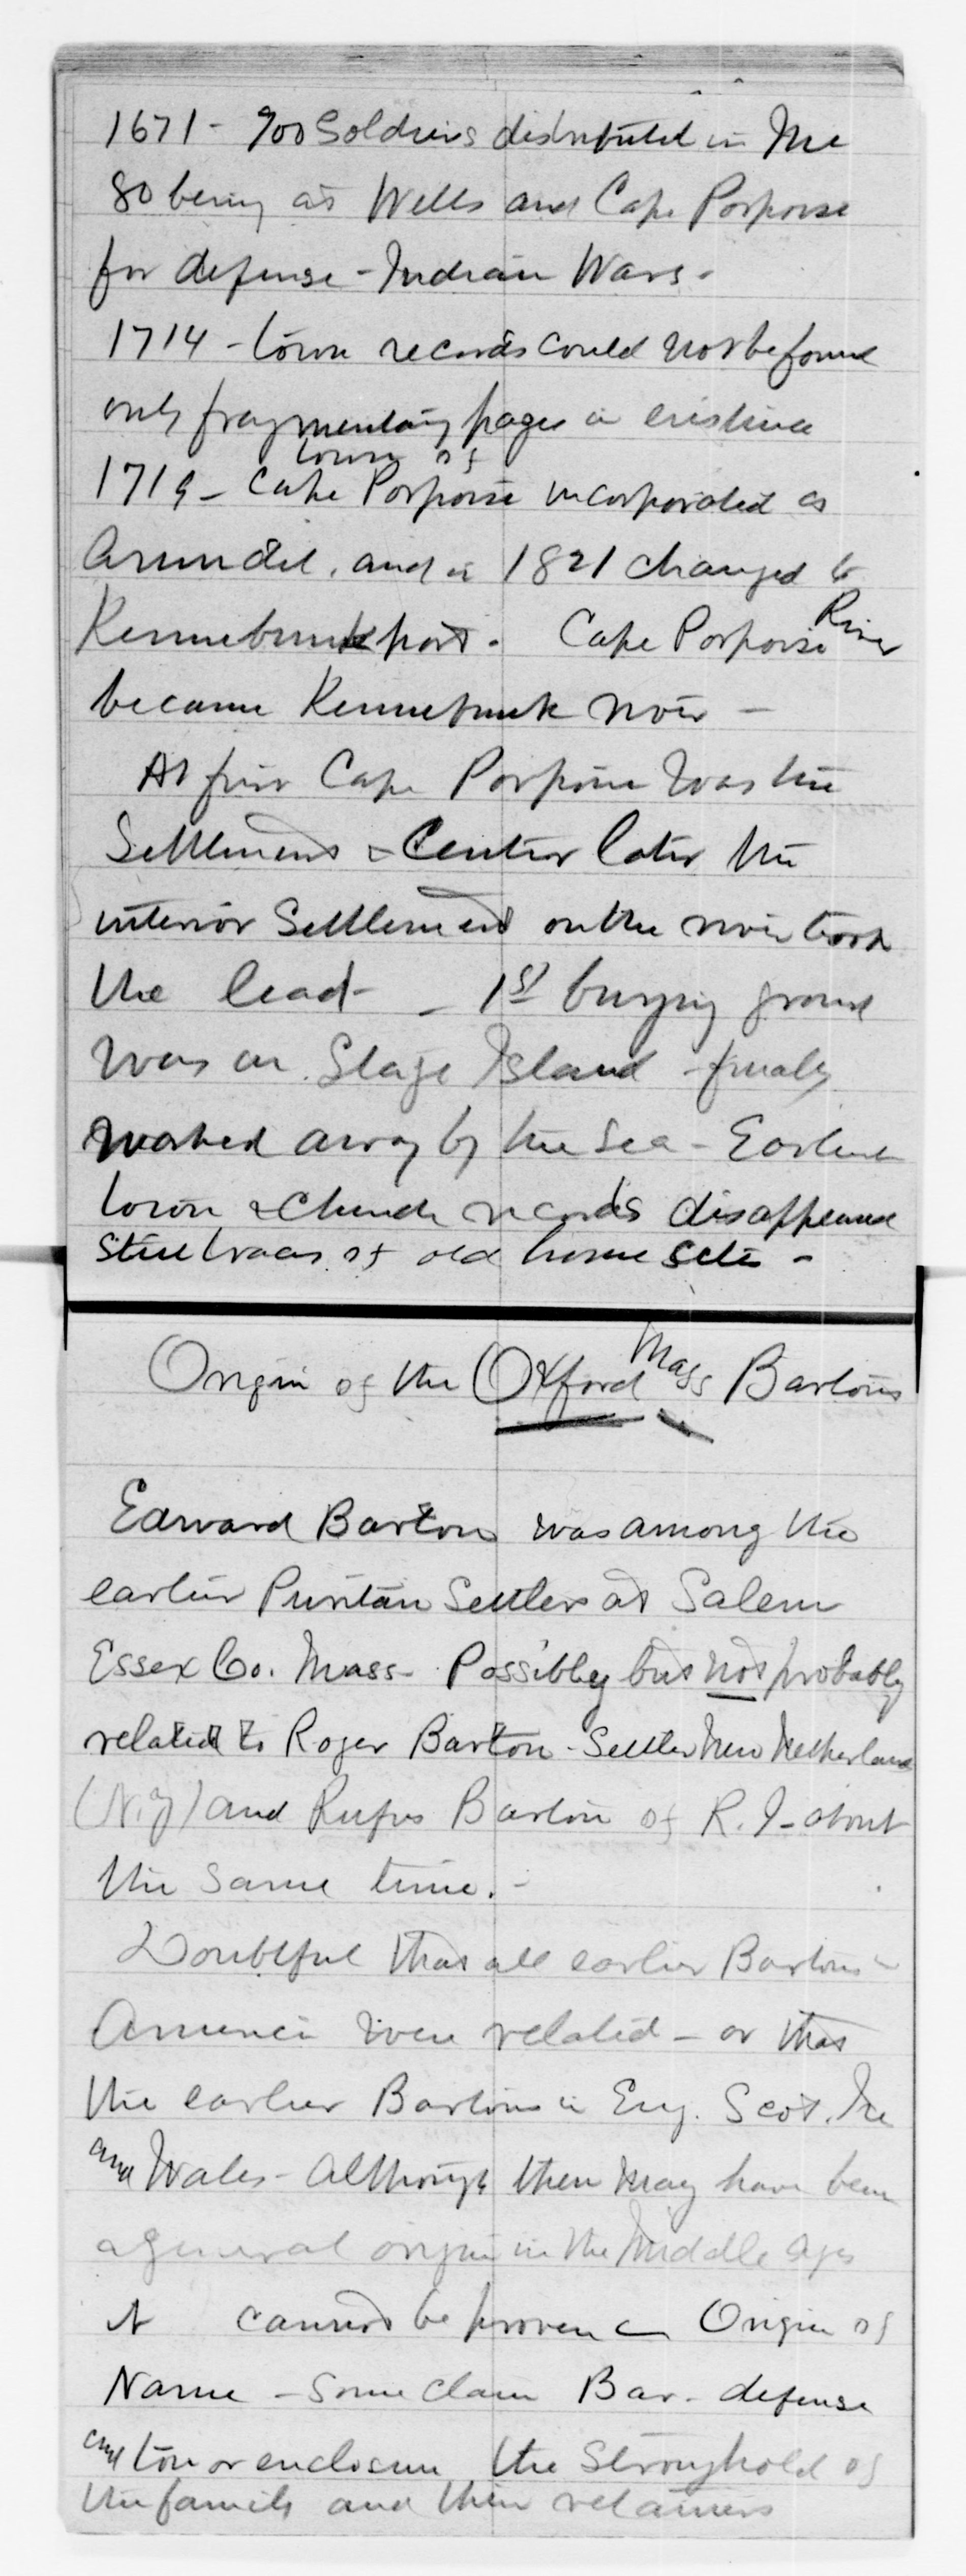 1671 - 900 Soldiers distributed in Me
80 being at Wells and Cape Porpoise
for defense - Indian Wars -
1714 - town records could not be found
only fragmentary pages in existence
town of
1719 - Cape Porpoise incorporated as
Arundel, and in 1821 changed to
Kennebunkport. Cape Porpoise River
became Kennebunk river -
At first Cape Porpoise was the
Settlement & Center later the
interior Settlement on the river took
the lead - - 1st burying ground
was on Stage Island - finally
washed away by the Sea - Earliest
town & Church records disappeared
Still traces of old home sites -
Origin of the Oxford Mass Bartons
Edward Barton was among the
earlier Puritan Settlers at Salem
Essex Co. Mass - Possibley but not probably
related to Roger Barton - Settler New Netherland
(N.Y) and Rufus Barton of R. I - about
the same time. -
Doubtful that all earlier Bartons in
America were related - or that
the earlier Bartons in Eng. Scot. Ire
and Wales - Although there may have been
a general origin in the Middle Ages
it cannot be proven - Origin of
Name - Some claim Bar - defense
and ton or enclosure the Stronghold of
the family and their retainers